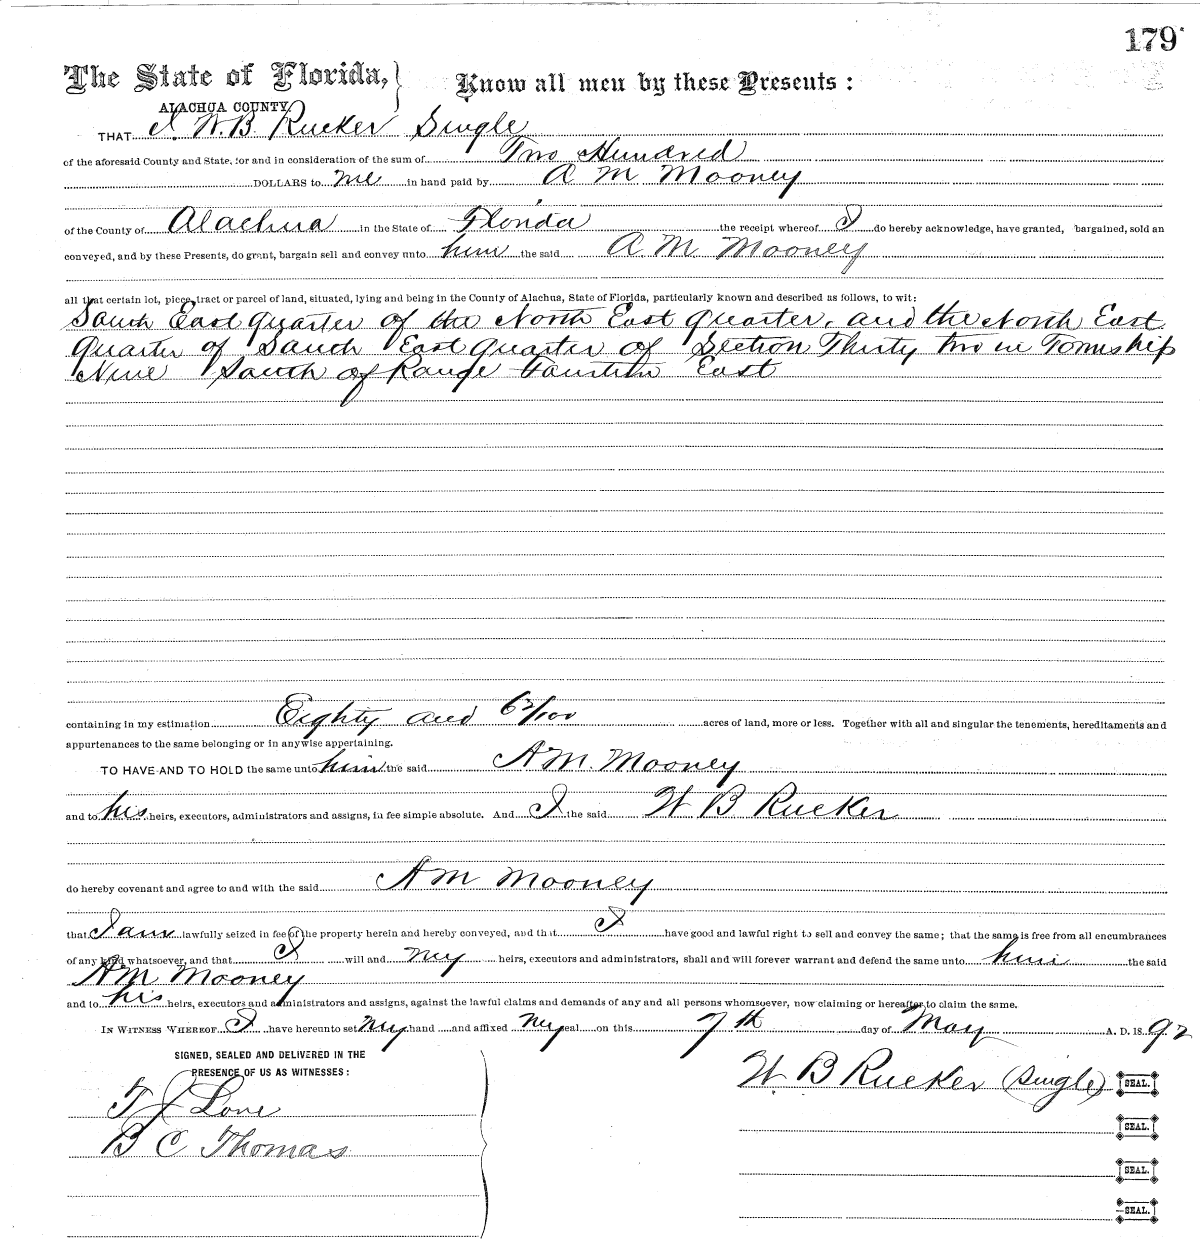 179
The State of Florida, Know all men by these Presents:
ALACHUA COUNTY.
THAT I. W. B. Rucker Single
of the aforesaid County and State, for and in consideration of the sum of Two Hundred
DOLLARS to me in hand paid by A M Mooney
of the County of Alachua in the State of Florida the receipt whereof I do hereby acknowledge, have granted, bargained, sold an
conveyed, and by these Presents, do grant, bargain sell and convey unto him the said A. M. Mooney
all that certain lot, piece, tract or parcel of land, situated, lying and being in the County of Alachua, State of Florida, particularly known and described as follows, to wit:
South East quarter of the North East quarter, and the North East
quarter of South East quarter of Section Thirty two in Township
Nine South of Range East
containing in my estimation Eighty and acres of land, more or less. Together with all and singular the tenements, hereditaments and
appurtenances to the same belonging or in anywise appertaining.
TO HAVE AND TO HOLD the same unto him the said A M. Mooney
and to his heirs, executors, administrators and assigns, in fee simple absolute. And I the said W B Rucker
do hereby covenant and agree to and with the said A M Mooney
that I am lawfully seized in fee of the property herein and hereby conveyed, and that I have good and lawful right to sell and convey the same; that the same is free from all encumbrances
of any kind whatsoever, and that I will and my heirs, executors and administrators, shall and will forever warrant and defend the same unto him the said
A M Mooney
and to his heirs, executors and administrators and assigns, against the lawful claims and demands of any and all persons whomsoever, now claiming or hereafter to claim the same.
IN WITNESS WHEREOF I have hereunto set my hand and affixed my seal on this 7th day of May A. D. 1892
SIGNED, SEALED AND DELIVERED IN THE
PRESENCE OF US AS WITNESSES:
W B Rucker (single) SEAL.
T J Lone
SEAL.
B C Thomas
SEAL.
SEAL.